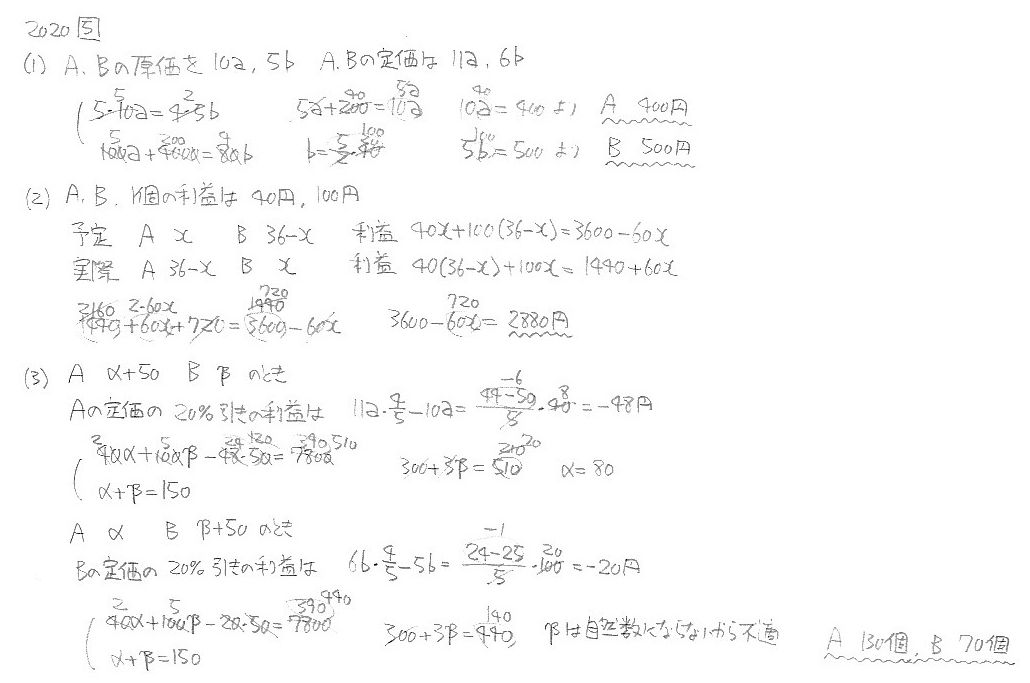 2020 5
(1) A, Bの原価を 10a, 5b A, Bの定価は 11a, 6b
5·10a=4·5b 5a+200=10a 10a=400より A 400円
100a+4000=80b b=5/2·40 5b=500より B 500円
(2) A, B, 1個の利益は 40円, 100円
予定 A x B 36-x 利益 40x+100(36-x)=3600-60x
実際 A 36-x B x 利益 40(36-x)+100x=1440+60x
1440+60x+720=3600-60x 3600-60x=2880円
(3) A α+50 B β のとき
Aの定価の 20%引きの利益は 11a·4/5-10a=(44-50)/5·40=-48円
40α+100β-48·50=7800 300+3β=510 α=80
α+β=150
A α B β+50 のとき
Bの定価の 20%引きの利益は 6b·4/5-5b=(24-25)/5·100=-20円
40α+100β-20·50=7800 300+3β=440, βは自然数にならないから不適
α+β=150 A 130個, B 70個